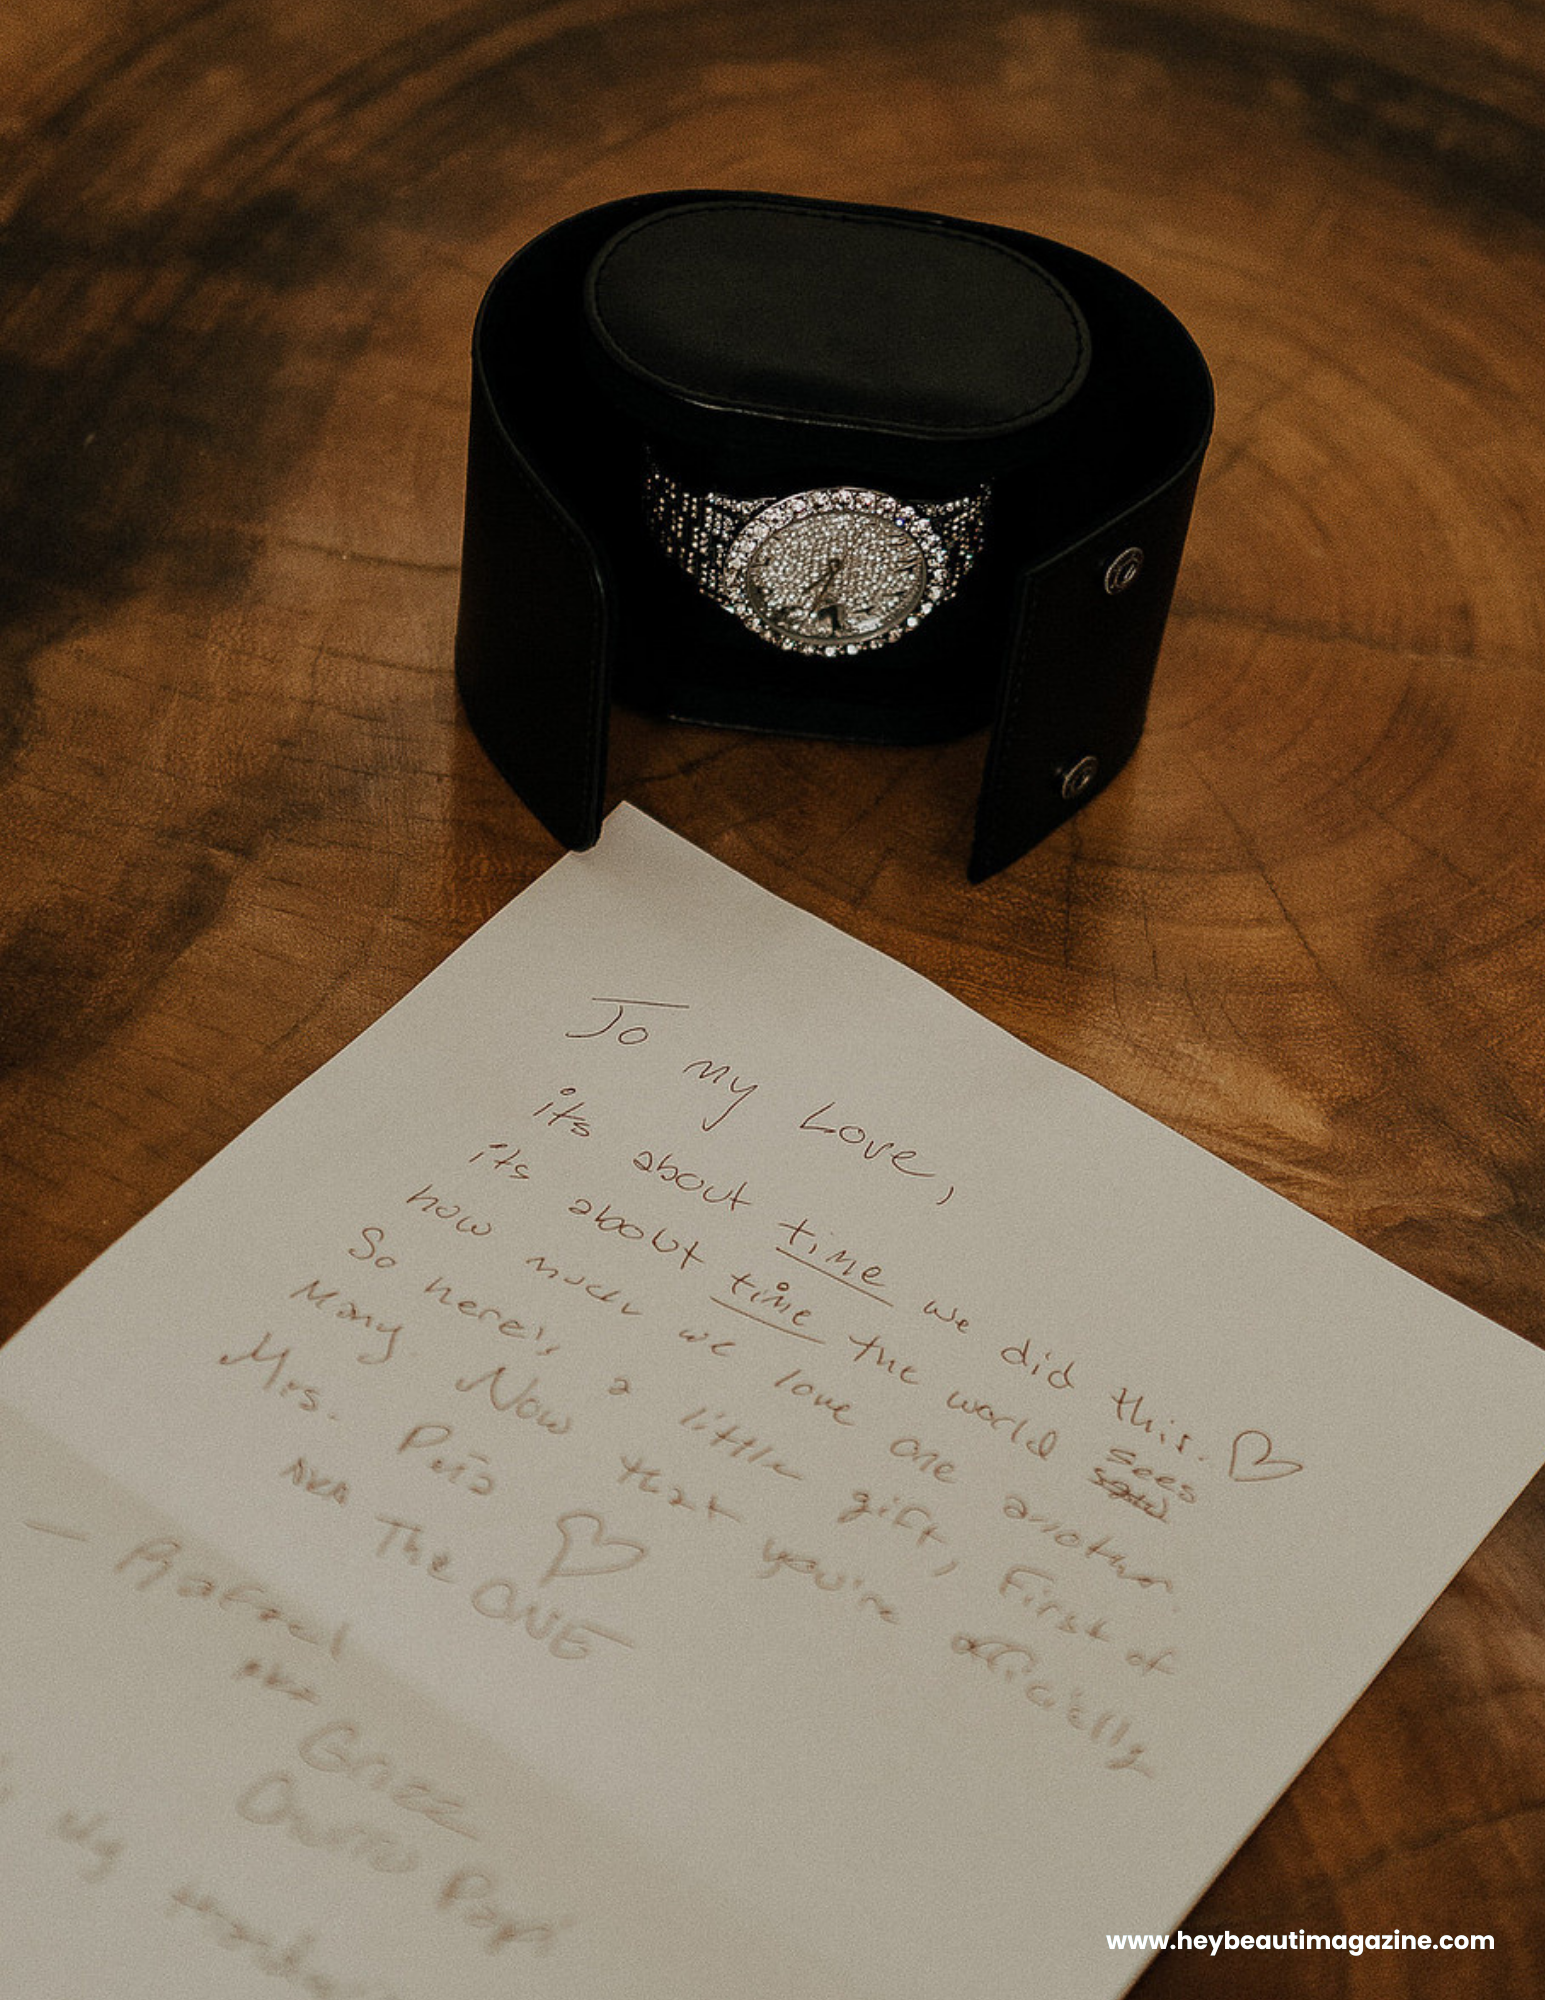 To my Love,
its about time we did this. ♡
its about time the world sees
how much we love one another.
So here's a little gift, First of
Many. Now that you're officially
Mrs. ♡
AKA The ONE
— Rafael
AKA
My
www.heybeautimagazine.com